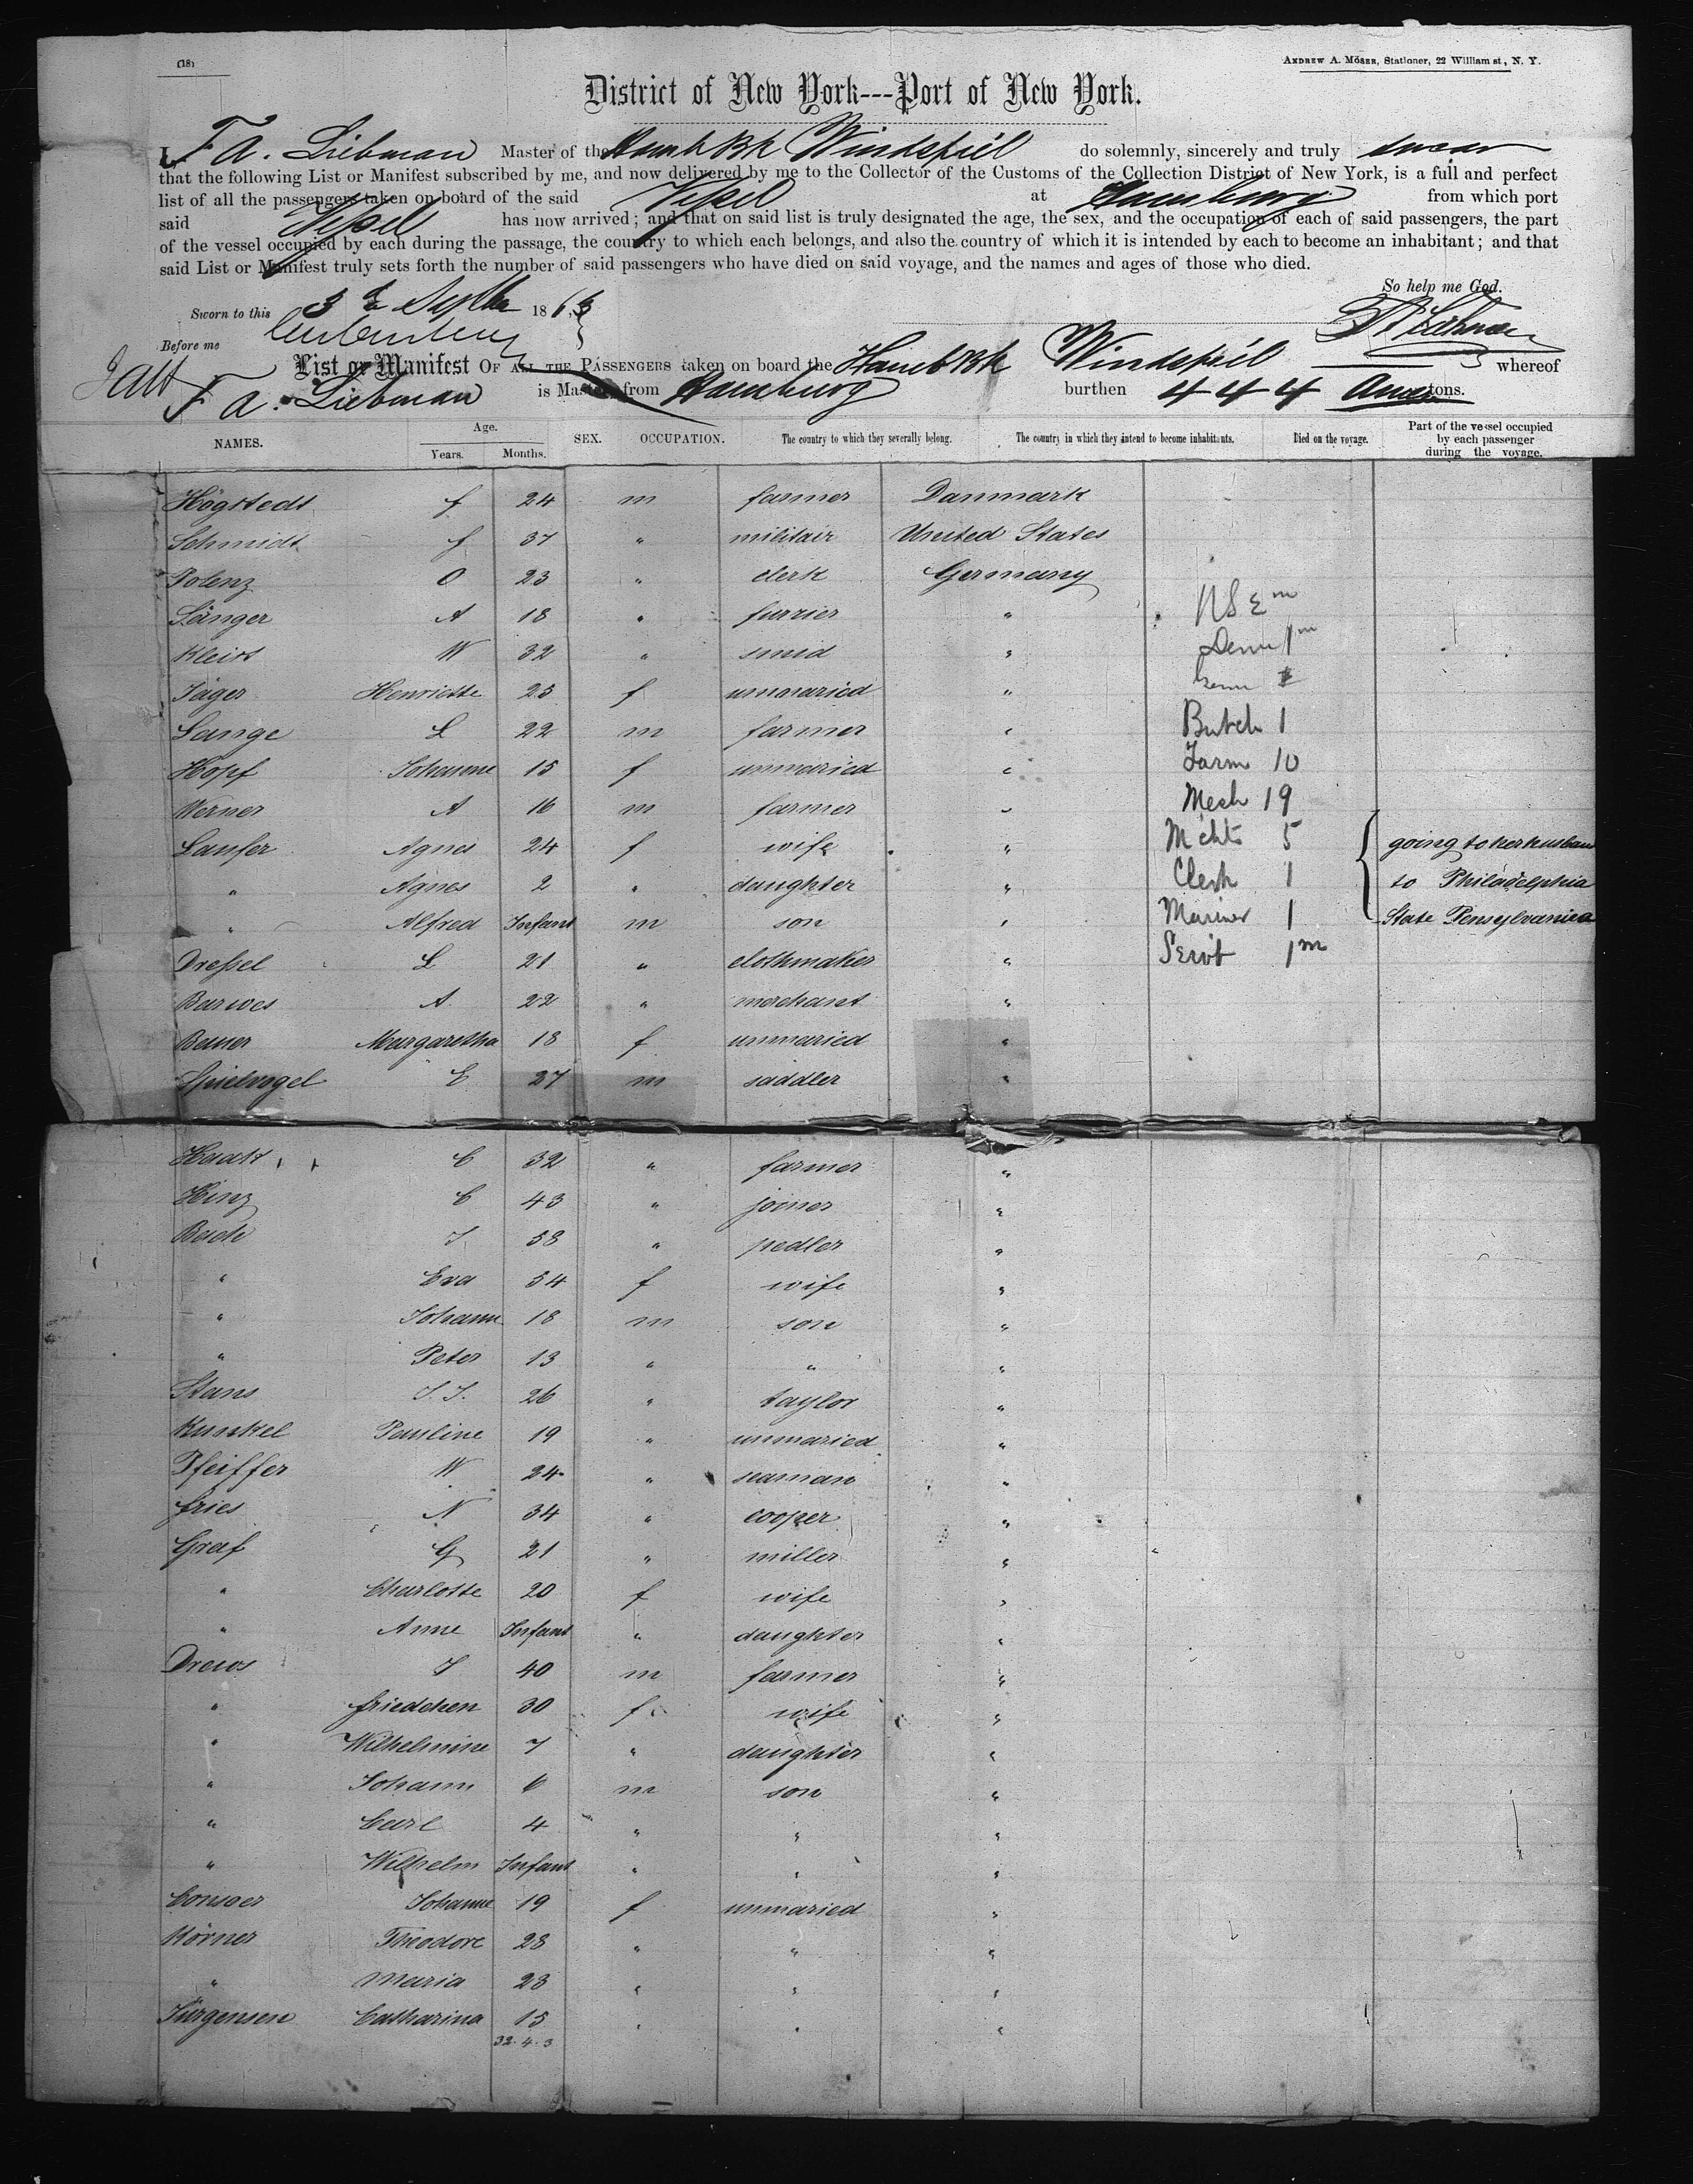 (18)
ANDREW A. MOSER, Stationer, 22 William st, N. Y.
District of New York---Port of New York.
I, F A. Liebman Master of the Hamb Bk Windspiel do solemnly, sincerely and truly swear
that the following List or Manifest subscribed by me, and now delivered by me to the Collector of the Customs of the Collection District of New York, is a full and perfect
list of all the passengers taken on board of the said Vessel at Hamburg from which port
said Vessel has now arrived; and that on said list is truly designated the age, the sex, and the occupation of each of said passengers, the part
of the vessel occupied by each during the passage, the country to which each belongs, and also the country of which it is intended by each to become an inhabitant; and that
said List or Manifest truly sets forth the number of said passengers who have died on said voyage, and the names and ages of those who died.
So help me God.
Sworn to this 3 d Septbr 186
Before me
List or Manifest OF ALL THE PASSENGERS taken on board the Hamb Bk Windspiel whereof
F A. Liebman is Master, from Hamburg burthen 444 tons.
NAMES. Age. Years. Months. SEX. OCCUPATION. The country to which they severally belong. The country in which they intend to become inhabitants. Died on the voyage. Part of the vessel occupied by each passenger during the voyage.
Högstedt f 24 m farmer Danmark
Schmidt f 37 " militair United States
Polenz O 23 " clerk Germany
Sänger A 18 " furrier "
Kleist W 32 " smid "
Jäger Henriette 25 f unmaried "
Lange L 22 m farmer " Butch 1
Hopf Johanne 15 f unmaried " Farm 10
Werner A 16 m farmer " Mech 19
Laufer Agnes 24 f wife " Mchts 5 going to her husban
" Agnes 2 " daughter " Clerk 1 to Philadelphia
" Alfred Infant m son " Mariner 1 State Pensylvaniea
Dressel L 21 " clothmaker " Servt 1m
Barwes A. 22 " merchant "
Beuer Margaretha 18 f unmaried "
Spielvogel E 27 m saddler "
Haak C 32 " farmer "
Hinz C 43 " joiner "
Bach J 58 " pedler "
" Eva 54 f wife "
" Johann 18 m son "
" Peter 13 " " "
Stans J. J. 26 " taylor "
Kunkel Pauline 19 " unmaried "
Pfeiffer W 24 " seaman "
fries N 34 " cooper "
Graf G 21 " miller "
" Charlotte 20 f wife "
" Anne Infant " daughter "
Drews J 40 m farmer "
" friedchen 30 f wife "
" Wilhelmine 7 " daughter "
" Johann 6 m son "
" Carl 4 " " "
" Wilhelm Infant " " "
Johanne 19 f unmaried "
Körner Theodore 28 " " "
" Maria 23 " " "
Jürgensen Catharina 15 " " "
32. 4. 3